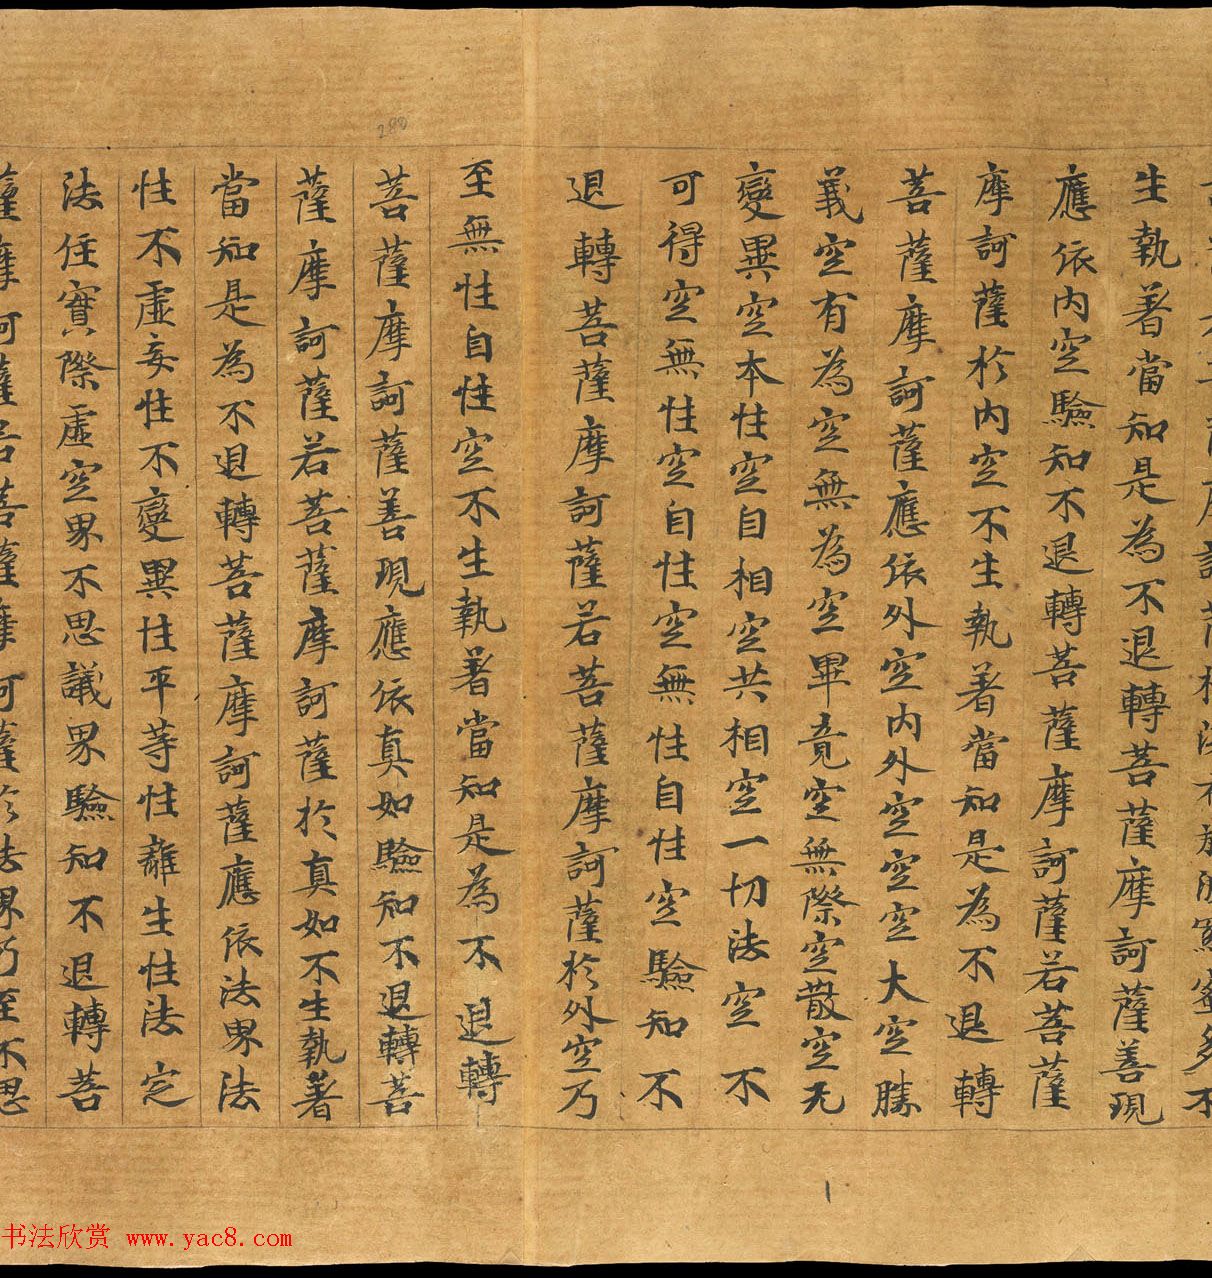 蜜多不
生執著當知是為不退轉菩薩摩訶薩善現
應依內空驗知不退轉菩薩摩訶薩若菩薩
摩訶薩於內空不生執著當知是為不退轉
菩薩摩訶薩應依外空內外空空空大空勝
義空有為空無為空畢竟空無際空散空无
變異空本性空自相空共相空一切法空不
可得空無性空自性空無性自性空驗知不
退轉菩薩摩訶薩若菩薩摩訶薩於外空乃
至無性自性空不生執著當知是為不退轉
菩薩摩訶薩善現應依真如驗知不退轉菩
薩摩訶薩若菩薩摩訶薩於真如不生執著
當知是為不退轉菩薩摩訶薩應依法界法
性不虛妄性不變異性平等性離生性法定
法住實際虛空界不思議界驗知不退轉菩
薩摩訶薩若菩薩摩訶薩於法界乃至不思
280
书法欣赏 www.yac8.com